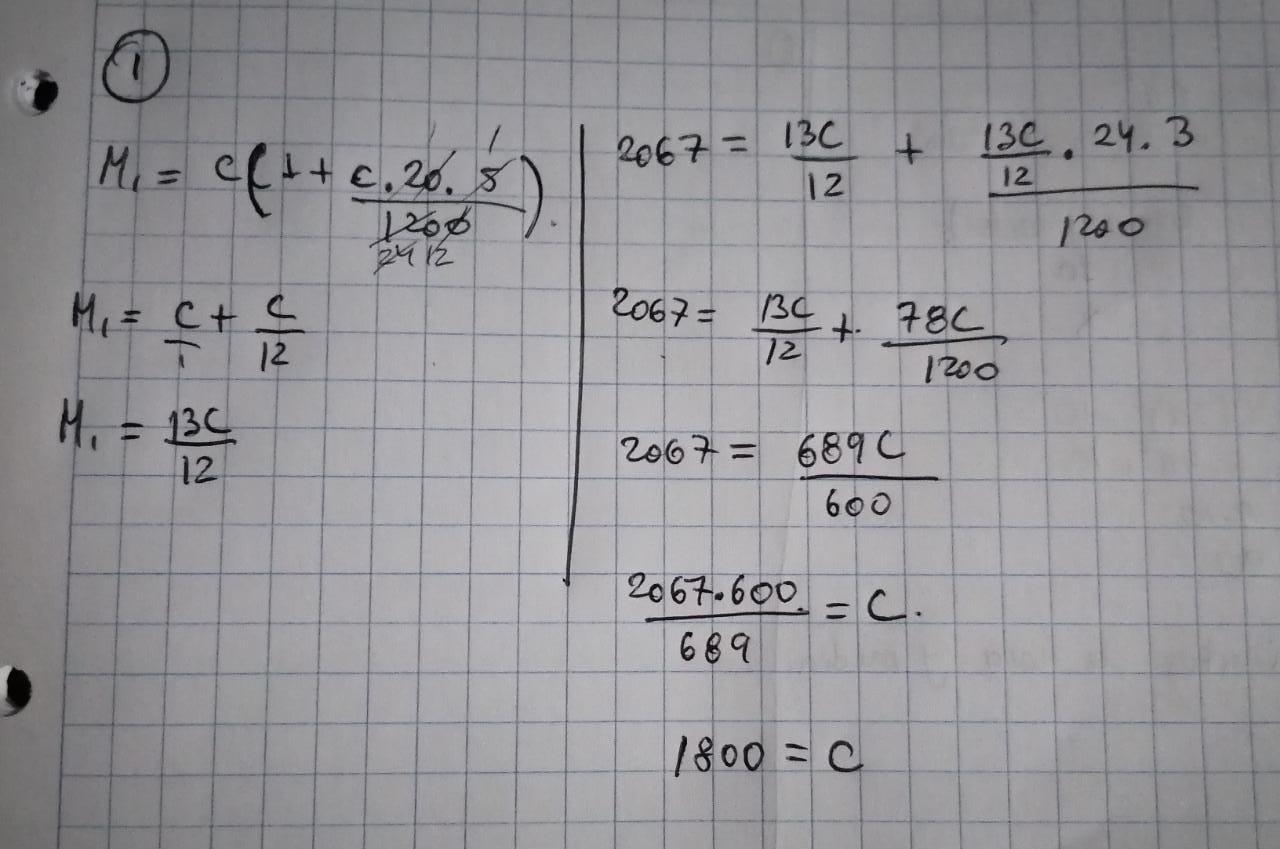 1
M₁ = C(1 + C.20.5/1200).
1 1
24 12
M₁ = C/1 + C/12
M₁ = 13C/12
2067 = 13C/12 + 13C/12 . 24. 3/1200
2067 = 13C/12 + 78C/1200
2067 = 689C/600
2067.600./689 = C.
1800 = C